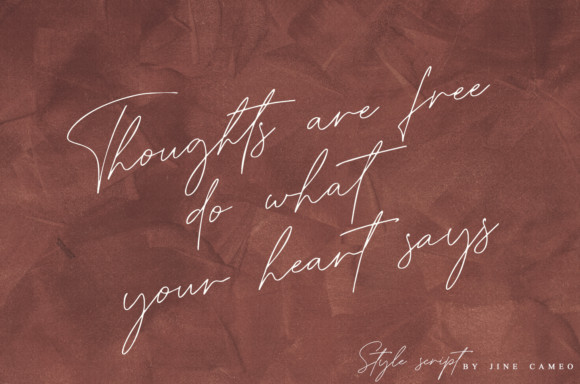 Thoughts are free
do what
your heart says
Style script BY JINE CAMEO